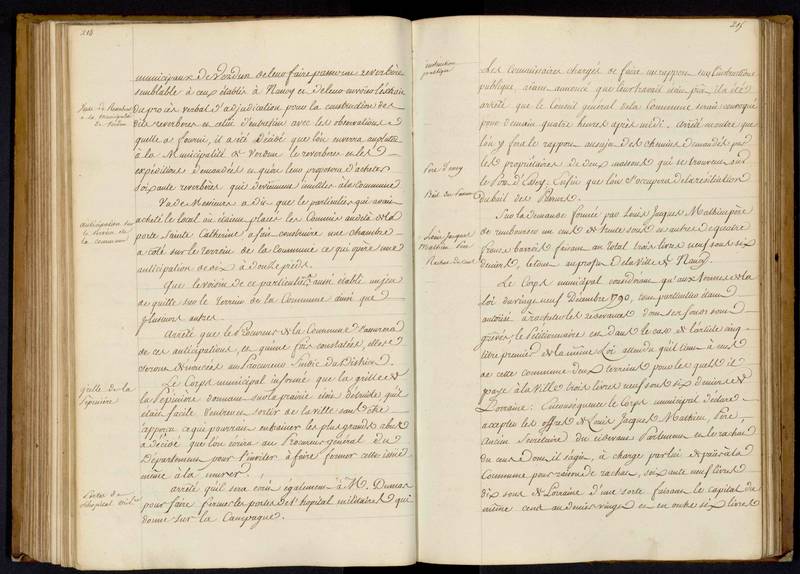 214
municipaux de Verdun de leur faire passer un reverbère
semblable à ceux établis à Nancy et de leur envoyer
du procès verbal d'adjudication pour la construction des
dits reverberes et celui d'entretien avec les observations
quelle a fourni, il a été décidé que l'on enverra
à la Municipalité de Verdun le reverbere et les
expéditions demandées et qu'on leur proposera d'acheter
soixante reverbères qui deviennent inutiles à la Commune
a dit que le particulier qui avait
acheté le local où étaient placés les Commis au delà de la
porte Sainte Catherine a fait construire une chambre
à côté sur le terrein de la Commune ce qui opère une
anticipation de dix à douze pieds.
Que le voisin de ce particulier avait établi un jeu
de quille sur le Terrein de la Commune ainsi que
plusieurs autres.
Arrêté que le Procureur de la Commune
de ces anticipations, et qu'une fois constatées, elles
seront dénoncées au Procureur Sindic du District.
Le Corps municipal informé que la grille de
la Pépinière donnant sur la prairie étoit détruite, qu'il
était facile d'entrer et sortir de la ville sans être
apperçu ce qui pourrait entrainer les plus grands abus
a décidé que l'on écrira au Procureur général du
Département pour l'inviter à faire fermer cette issue
même à la murer.
arrêté qu'il sera écrit également à M. Dumas
pour faire fermer les portes de l'hopital militaire qui
donne sur la Campagne.
à la municipalité
de Verdun
anticipation sur
le terrein de
la commune
grille de la
Pépinière
Porte de
l'hopital
215
instruction
publique
Les Commissaires chargés de faire un rapport sur l'instruction
publique, aiant annoncé que leur travail étoit prêt il a été
arrêté que le Conseil général de la Commune serait convoqué
pour demain quatre heures après midi. Arrêté en outre que
l'on y fera le rapport au sujet des chemins demandés par
les propriétaires de deux maisons qui se trouvent sur
le Pré d'Essey. Enfin que l'on s'occupera de la résiliation
du bail des
Sur la demande formée par Louis Jacques Mathieu père
de rembourser un cens de trente sous et un autre de quatre
francs barrois faisant au total trois livres neuf sous six
deniers, le tout au profit de la ville de Nancy.
Le Corps municipal considérant qu'aux termes de la
Loi du vingt neuf Décembre 1790, tout particulier étant
autorisé à racheter les redevances dont ses fonds sont
grevés, le Pétitionnaire est dans le cas de l'article cinq
titre premier de la même Loi attendu qu'il tient à cens
de cette commune deux terreins pour lesquels il
paye à la ville trois livres neuf sous six deniers de
Lorraine; Enconséquence le Corps municipal déclare
accepter les offres de Louis Jacques Mathieu, Père,
ancien Secrétaire du cidevant Parlement et le rachat
du cens dont il s'agit, à charge par lui de païer à la
Commune pour raison de rachat, soixante neuf livres
dix sous de Lorraine d'une sorte faisant le capital du
même cens au denier vingt et en outre six livres
Pré d'essey
Bail des
Louis Jacques
Mathieu Père
Rachat de cens